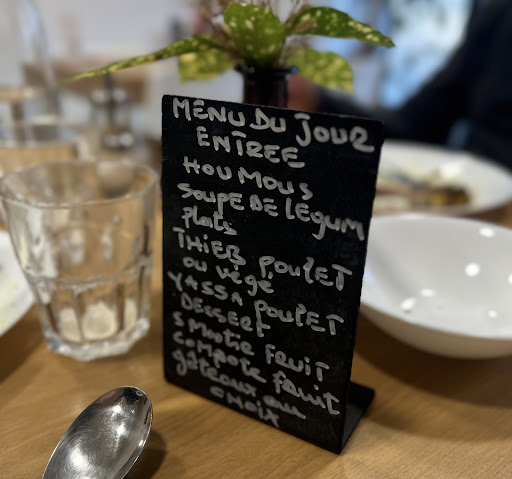 MENU DU JOUR
ENTREE
HOUMOUS
SOUPE DE LEGUM
Plats
THIEB POULET
OU végé
YASSA POULET
DESSERT
SMOOTIE FRUIT
COMPOTE FRUIT
gâteaux au
CHOIX